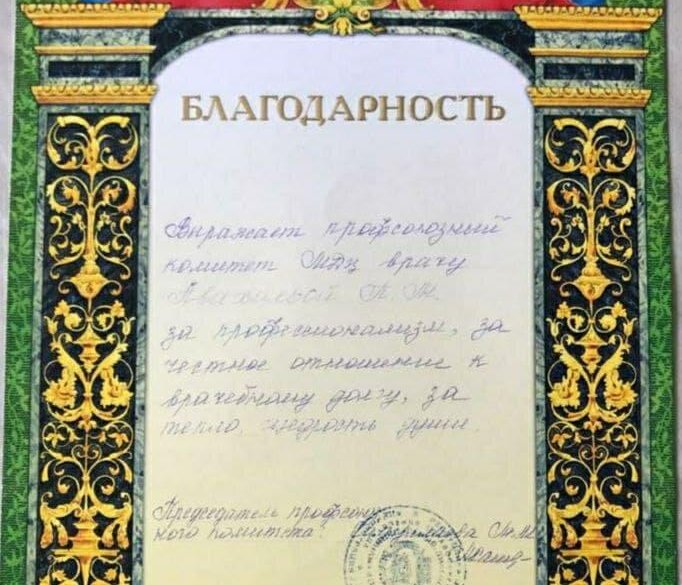 БЛАГОДАРНОСТЬ
Выражает профсоюзный
комитет МДЦ врачу
за профессионализм, за
честное отношение к
врачебному долгу, за
тепло, щедрость души.
Председатель профсоюз-
ного комитета: